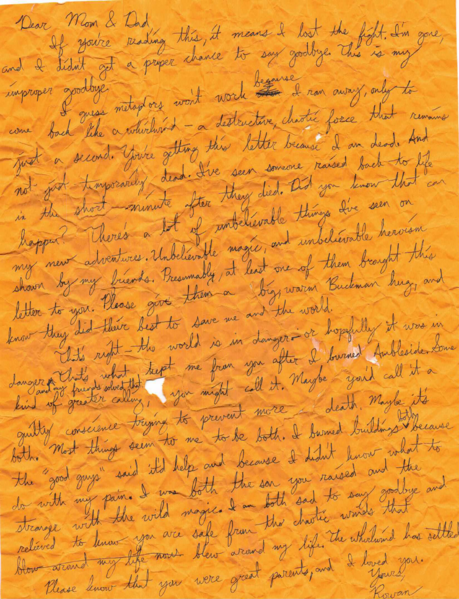 Dear Mom & Dad,
If you're reading this, it means I lost the fight. I'm gone,
and I didn't get a proper chance to say goodbye. This is my
improper goodbye.
I guess metaphors won't work because I ran away, only to
come back like a whirlwind – a destructive, chaotic force that remains
just a second. You're getting this letter because I am dead. And
not just temporarily dead. I've seen someone raised back to life
in the short minute after they died. Did you know that can
happen? There's a lot of unbelievable things I've seen on
my new adventures. Unbelievable magic, and unbelievable heroism
shown by my friends. Presumably, at least one of them brought this
letter to you. Please give them a big, warm Buckman hug, and
know they did their best to save me and the world.
That's right – the world is in danger – or hopefully it was in
danger and my friends solved that. That's what kept me from you after I burned Ambleside. Some
kind of greater calling you might call it. Maybe you'd call it a
guilty conscience trying to prevent more death. Maybe it's
both. Most things seem to me to be both. I burned buildings because
the "good guys" said it'd help and because I didn't know what to
do with my pain. I was both the son you raised and the
strange with the wild magic. I am both sad to say goodbye and
relieved to know you are safe from the chaotic winds that
blow around my life now blew around my life. The whirlwind has settled.
Please know that you were great parents, and I loved you.
Yours,
Rowan